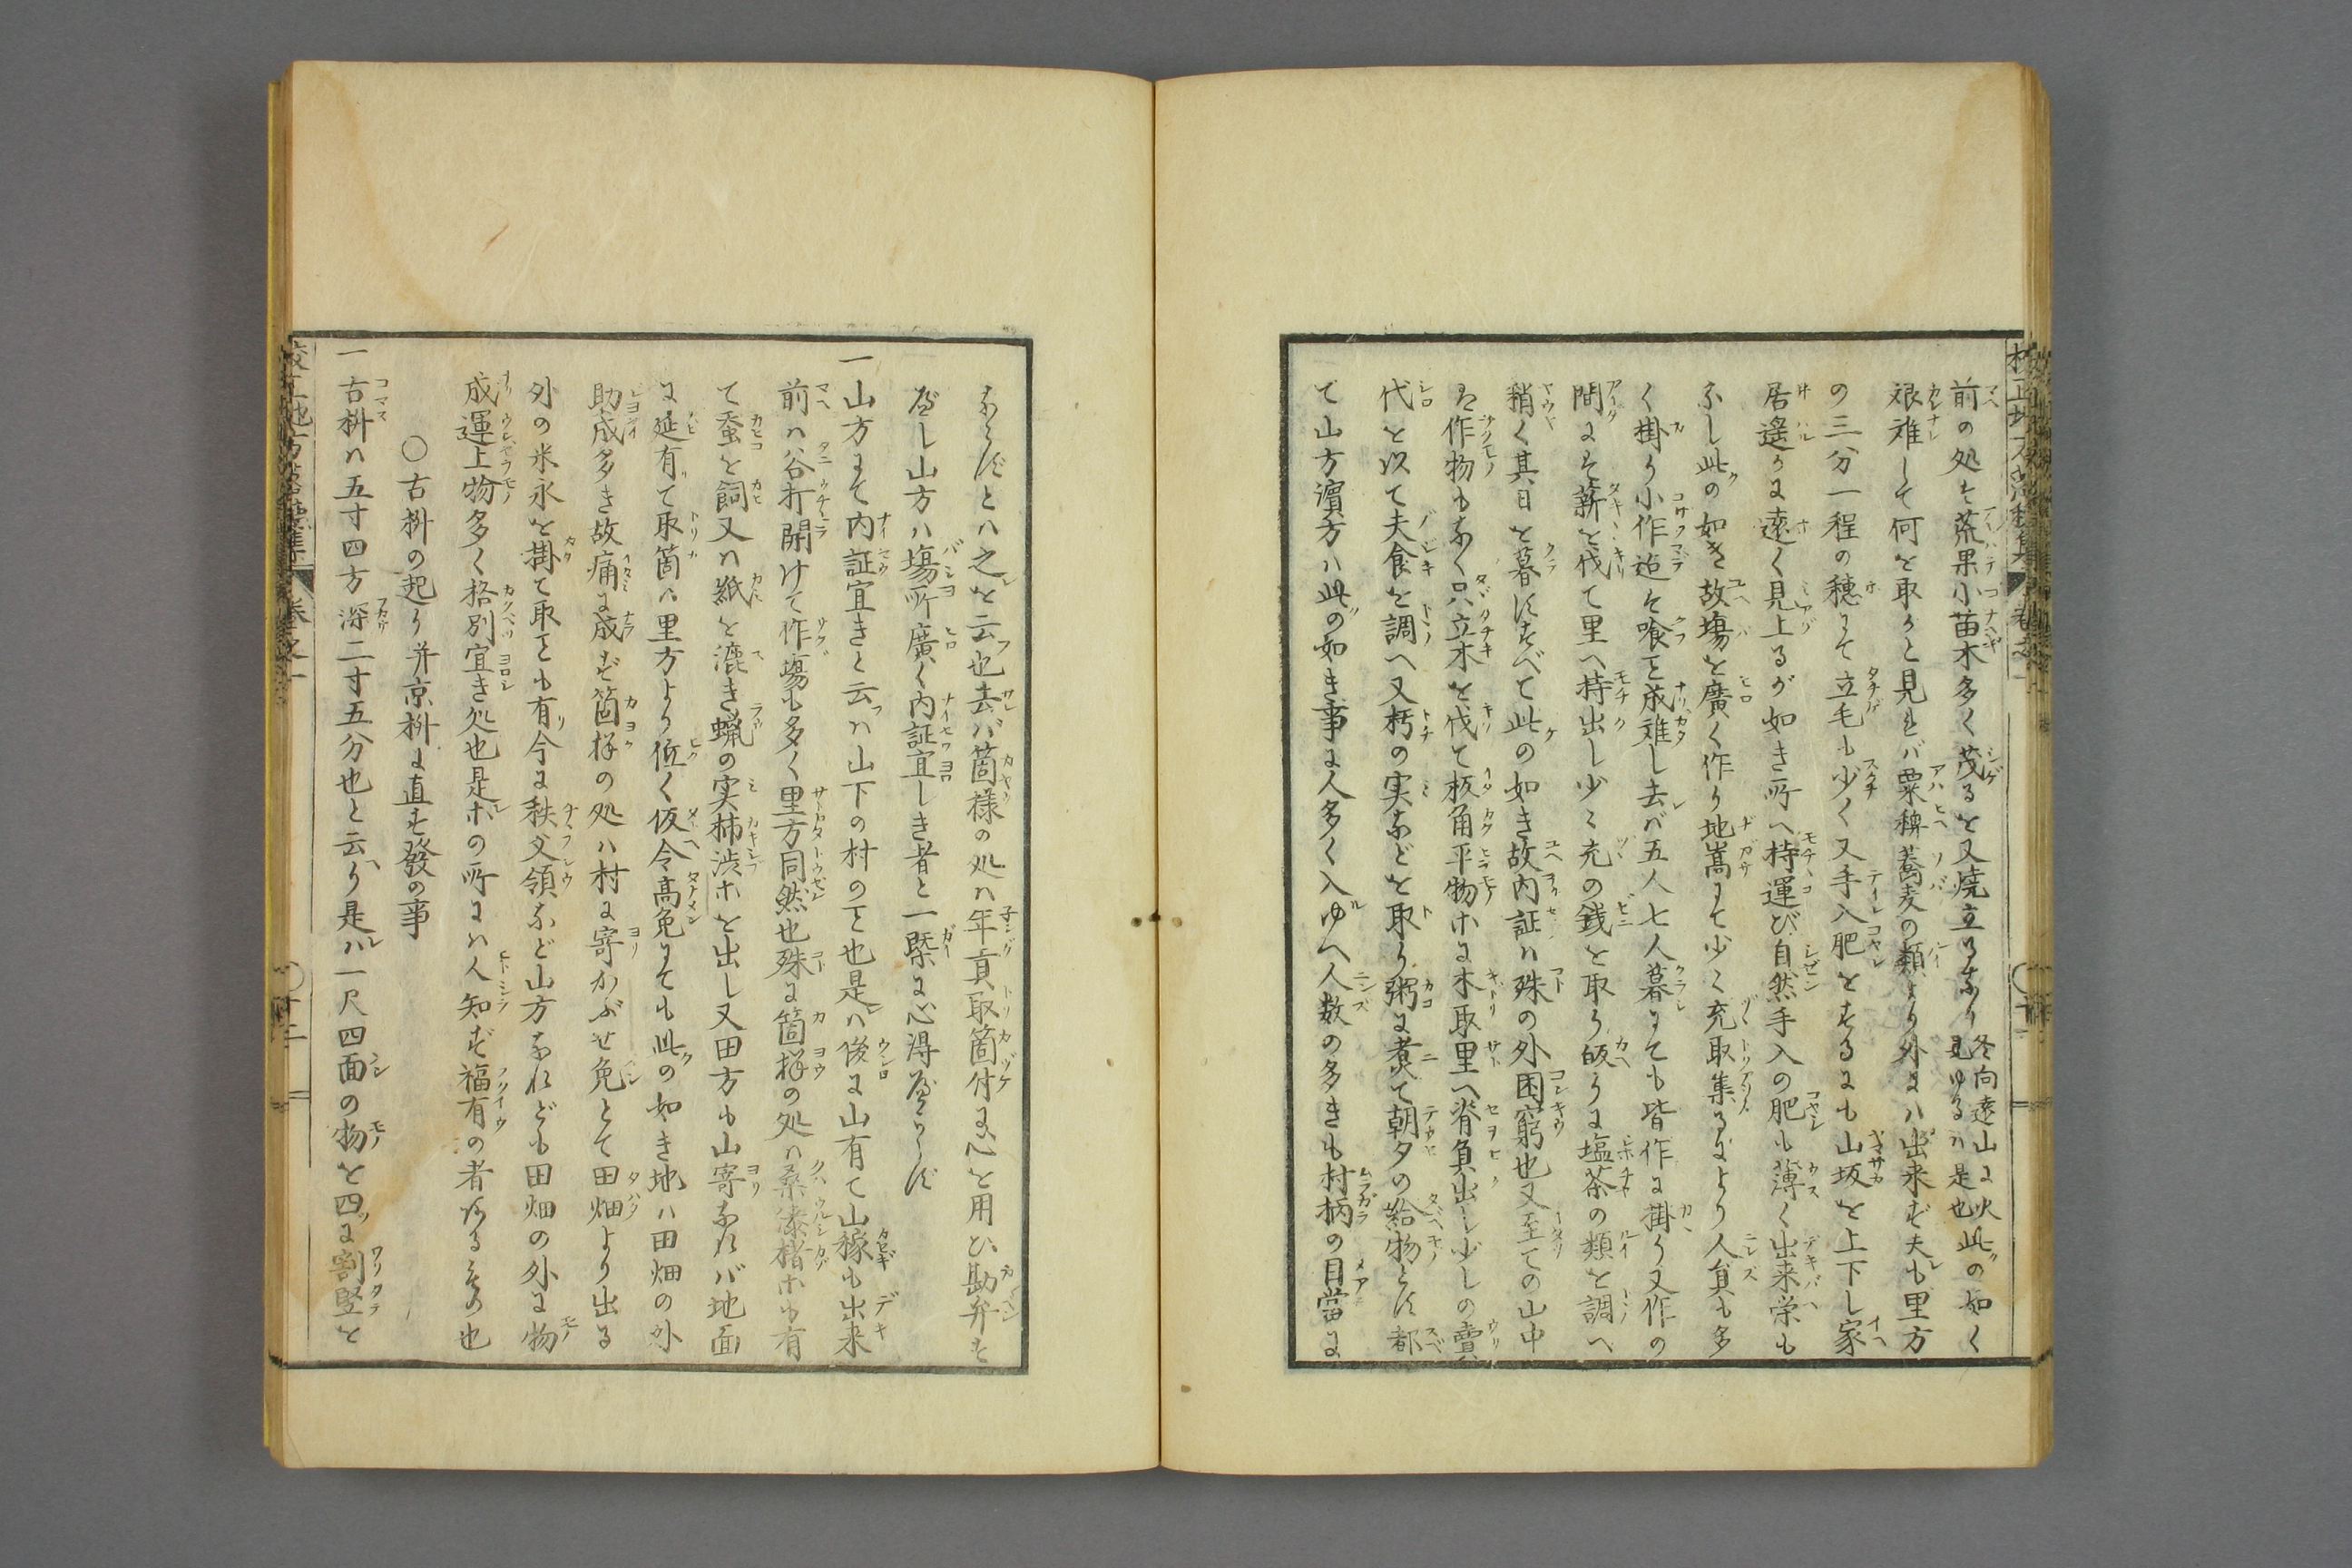 前の処は荒果小苗木多く茂るを又焼立るなり冬向遠山に火此の如く見ゆるハ是也
艱難して何を取かと見れバ粟稗蕎麦の類より外にハ出来ず夫も里方
の三分一程の穂にて立毛も少く又手入肥をするにも山坂を上下し家
居遙かに遠く見上るが如き所へ持運び自然手入の肥も薄く出来栄も
なし此の如き故場を廣く作り地嵩にて少々充取集るにより人負も多
く掛り小作迄は喰を成難し去バ五人七人暮にても皆作に掛り又作の
間には薪を伐て里へ持出し少々充の銭を取り皈りに塩茶の類を調へ
稍く其日を暮すすべて此の如き故内証ハ殊の外困窮也又至ての山中
は作物もなく只立木を伐て板角平物ホに木取里へ脊負出し少しの賣
代を以て夫食を調へ又朽の実などを取り粥に煮て朝夕の給物とす都
て山方濵方ハ此の如き事に人多く入ゆへ人数の多きも村柄の目當に
ならずとハ之を云也去バ箇様の処ハ年貢取箇付に心を用ひ勘弁を
べし山方ハ場所廣く内証宜しき者と一槩に心得べからず
一山方にて内証宜きと云ハ山下の村のを也是ハ後に山有て山稼も出来
前ハ谷打開けて作場も多く里方同然也殊に箇様の処ハ桑漆楮ホも有
て蚕を飼又ハ紙を漉き蝋の実柿渋ホを出し又田方も山寄なれバ地面
に延有て取箇ハ里方より低く仮令高免にても此の如き地ハ田畑の外
助成多き故痛に成ず箇様の処ハ村に寄かぶせ免とて田畑より出る
外の米永を掛て取をも有今に秩父領など山方なれども田畑の外に物
成運上物多く格別宜き処也是ホの所にハ人知ず福有の者あるもの也
〇古枡の起り并京枡に直す發の事
一古枡ハ五寸四方深二寸五分也と云り是ハ一尺四面の物を四に割竪を
卷之一